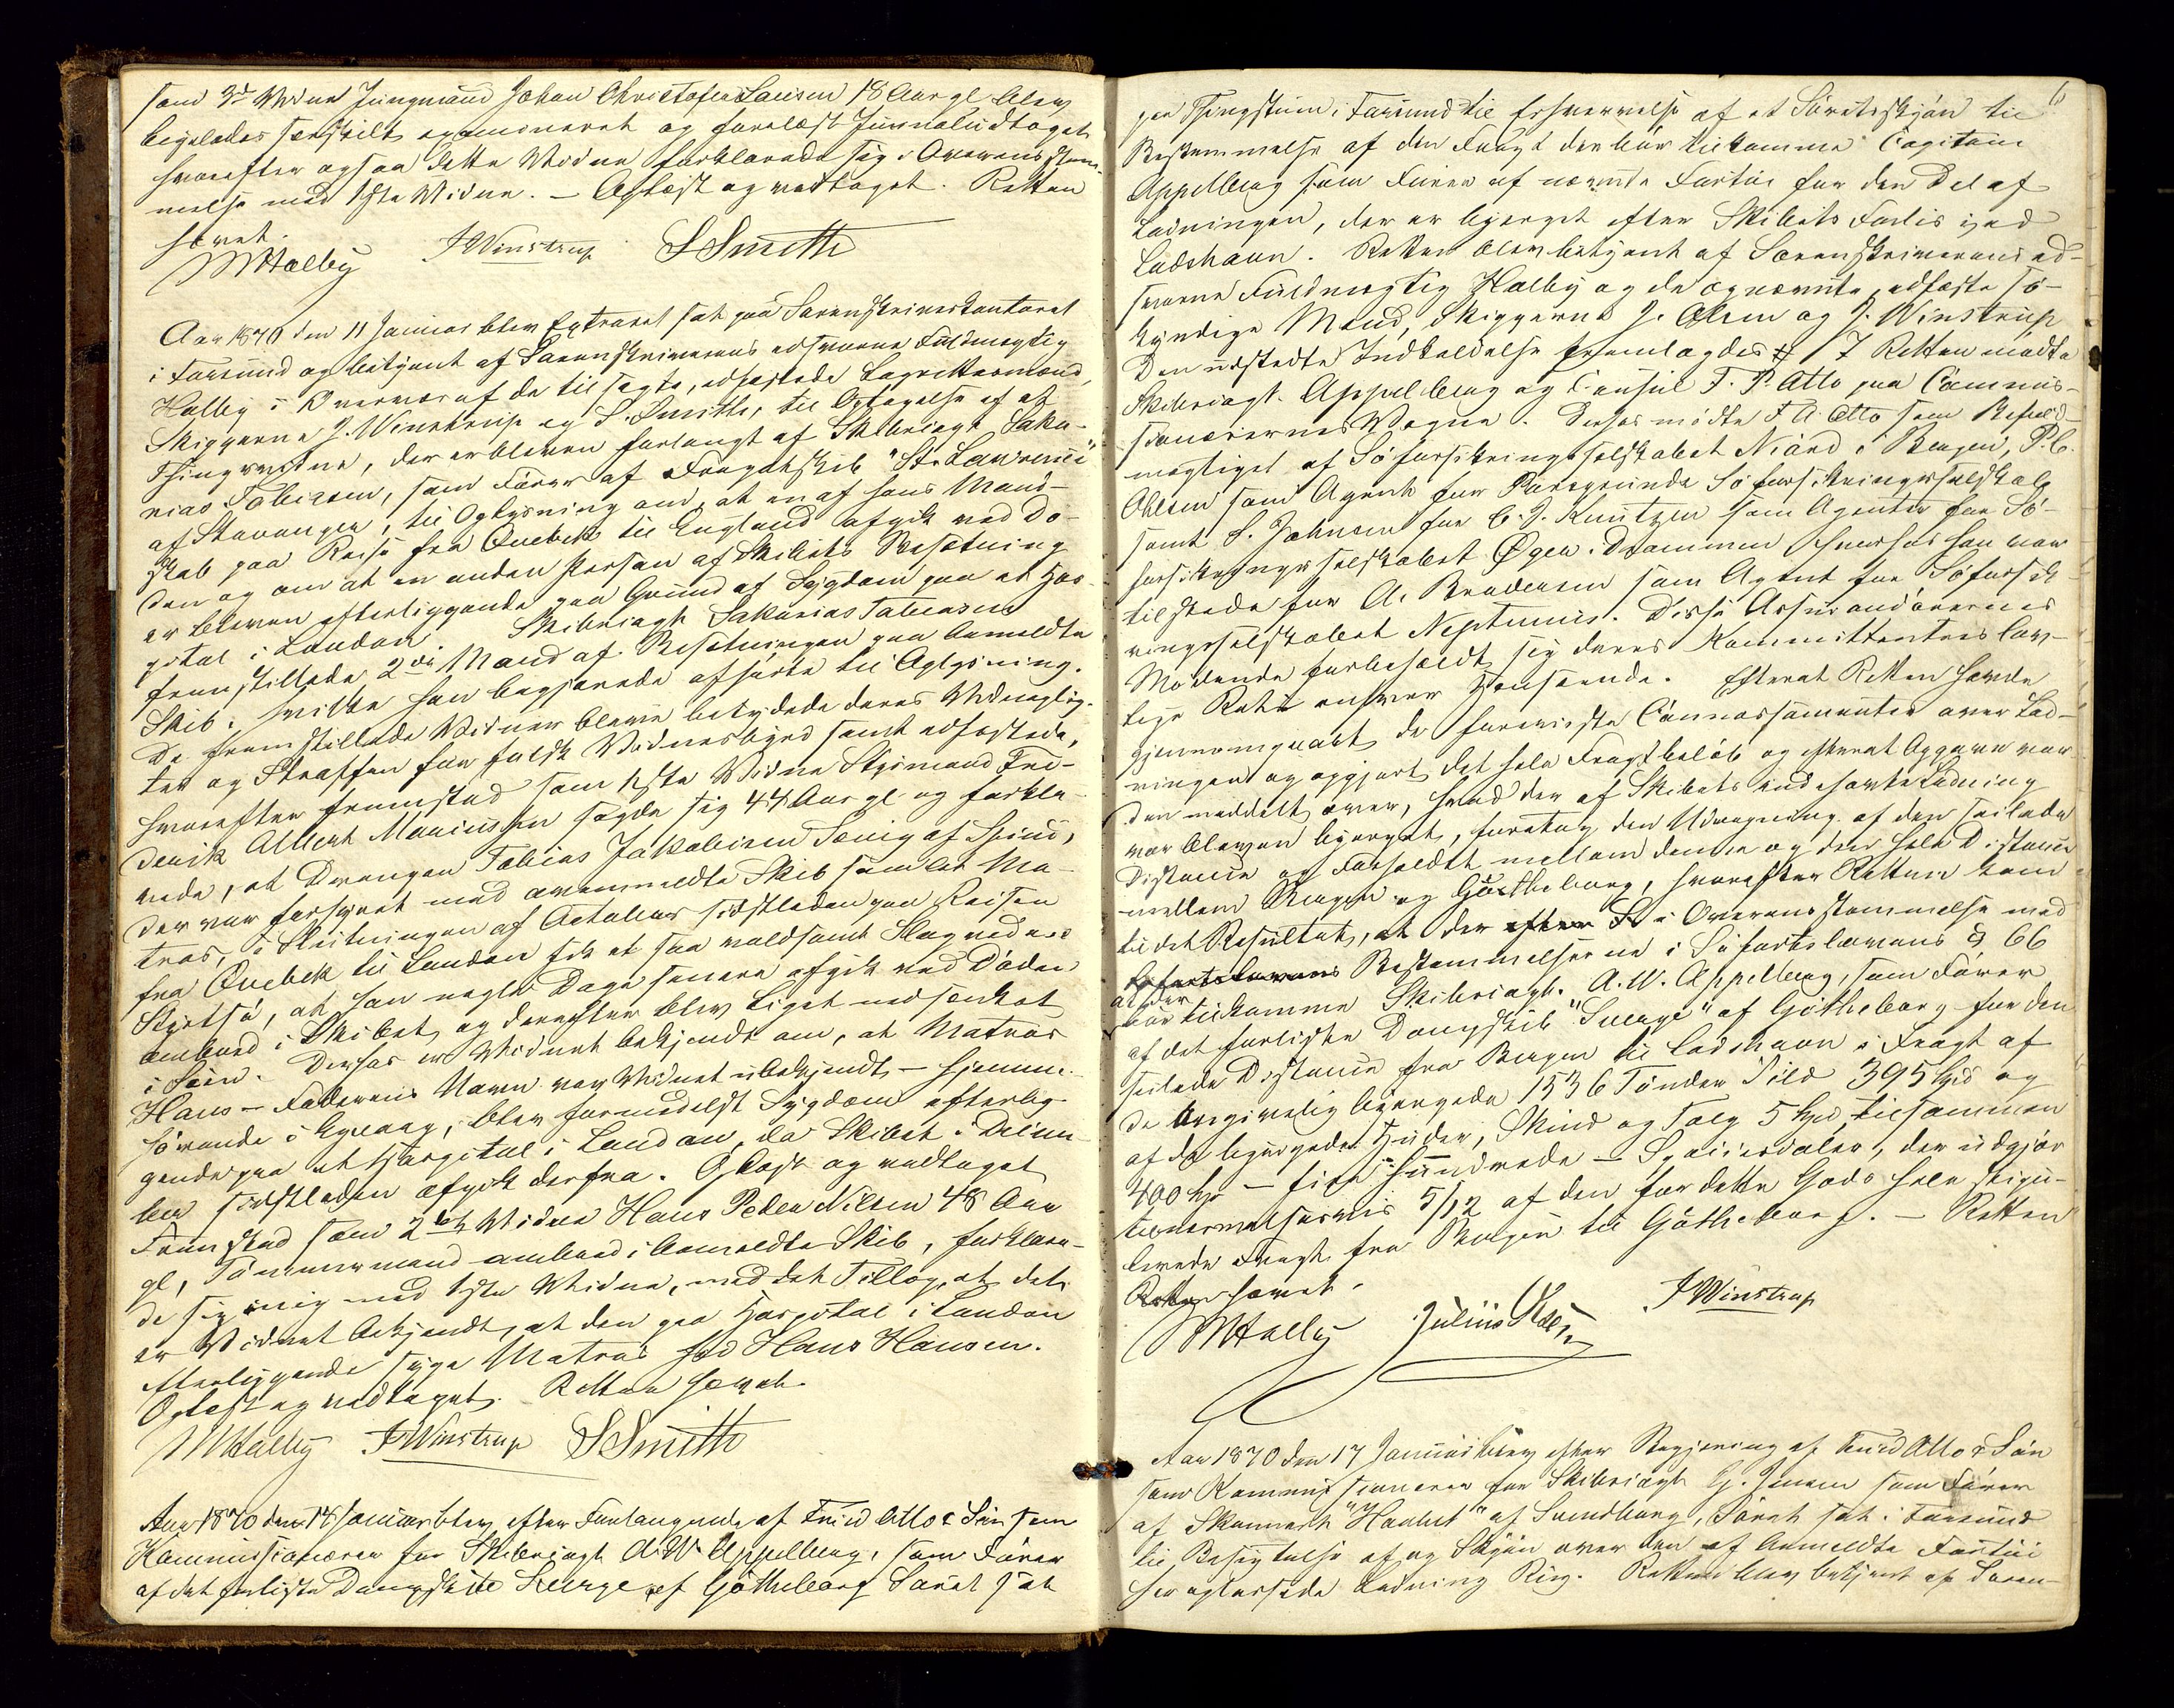 som 3d Vidne Jungmand Johan Christofer Larsen 18 Aar gl. blev
ligeledes særskilt examineret og forelæst Journaludtoget
hvorefter ogsaa dette Vidne forklarede sig i Overensstem-
melse med 1ste Vidne. – Oplæst og vedtaget. Retten
hævet.
MHalby JWinstrup SSmith
Aar 1870 den 11 Januar blev Extraret sat paa Sorenskriverkontoret
i Farsund og betjent af Sorenskriverens edsvorne Fuldmægtig
Halby i Overvær af de tilsagte, edfæstede Lagrettesmænd,
Skipperne J. Winstrup og S. Smith, til Optagelse af et
Thingsvidne, der er bleven forlangt af Skibskapt. Saka-
rias Tobiasen, som Fører af Fregatskib "St. Lawrence"
af Stavanger, til Oplysning om, at en af hans Mand-
skab paa Reise fra Quebek til England afgik ved Dø-
den og om at en anden Person af Skibets Besætning
er bleven efterliggende paa Grund af Sygdom paa et Hos-
pital i London. Skibskapt. Sakarias Tobiasen
fremstillede 2de Mand af Besætningen paa anmeldte
Skib, hvilke han begjærede afhørte til Oplysning.
De fremstillede Vidner bleve betydede deres Vidnepligt
ter og Straffen for falsk Vidnesbyrd samt edfæstede,
hvorefter fremstod som 1ste Vidne Styrmand Fre-
derik Albert Mauritssen sagde sig 44 Aar gl. og forkla-
rede, at Drengen Tobias Jakobsen Sønig af Spind,
der var forhyret med ovenmeldte Skib som let Ma-
tros, i Slutningen af October sidstleden paa Reisen
fra Quebek til London fik et saa voldsomt Slag ved en
Styrtsø, at han nogle Dage senere afgik ved Døden
ombord i Skibet, og derefter blev Liget nedsænket
i Søen. Derhos er Vidnet bekjendt om, at Matros
Hans – Faderens Navn var Vidnet ubekjendt – hjemme-
hørende i, blev formedelst Sygdom efterlig-
gende paa et Hospital i London, da Skibet i Decem-
ber sidstleden afgik derfra. Oplæst og vedtaget
Fremstod som 2det Vidne Hans Peder Nilsen 48 Aar
gl, Tømmermand ombord i anmeldte Skib, forklare-
de sig enig med 1ste Vidne, med det Tillæg, at det
er Vidnet bekjendt, at den paa Hospital i London
efterliggende syge Matros hed Hans Hansen.
Oplæst og vedtaget. Retten hævet.
MHalby JWinstrup SSmith
Aar 1870 den 14 Januar blev efter Forlangende af Fuld Otto & Søn som
Kommissionærer for Skibskapt A. W. Appelberg, som Fører
af det forliste Dampskib Sverge af Gøtheborg Søret sat
6
paa Thingstuen i Farsund til Erhvervelse af et Søretsskjøn til
Bestemmelse af den Fragt der bør tilkomme Capitain
Appelberg som Fører af nævnte Fartøi for den Del af
Ladningen, der er bjerget efter Skibets Forlis ved
Ladshavn. Retten blev betjent af Sorenskriverens ed-
svorne Fuldmægtig Halby og de opnævnte, edfæstede sø-
kyndige Mænd, Skipperne J. Olsen og J. Winstrup
Den udstedte Indkaldelse fremlagdes # I Retten mødte
Skibskapt. Appelberg og Consul F. P. Otto paa Commis-
sionærernes Vegne. Derhos mødte F. A. Otto som Befuld-
mægtiget af Søforsikringsselskabet Niord i Bergen, P. C.
Ohlsen som Agent for Porsgrunds Søforsikringsselskab
samt S. Johnsen for C. J. Kuntzen som Agent for Sø-
forsikringsselskabet Øgir i Drammen hvorhos han var
tilstede for A. Brodersen som Agent for Søforsik-
ringsselskabet Neptunus. Disse Assurandørernes
Mødende forbeholdt sig deres Kommittenters lov-
lige Ret i enhver Henseende. Efterat Retten havde
gjennemgaaet de foreviste Connossementer over Lad-
ningen og opgjort det hele Fragtbeløb og efterat Opgave var
den meddelt over, hvad der af Skibets indehavte Ladning
var bleven bjerget, foretog den Udregning af den seilede
Distance og Forholdet mellem denne og den hele Distance
mellem Bergen og Gøtheborg, hvorefter Retten kom
til det Resultat, at der efter S i Overensstemmelse med
Søfartslovens Bestemmelserne i Søfartslovens § 66
at der
bør tilkomme Skibskapt. A. W. Appelberg, som Fører
af det forliste Dampskib "Sverge" af Gøtheborg for den
seilede Distance fra Bergen til Ladshavn i Fragt af
de angivelig bjergede 1536 Tønder Sild 395 Spd og
af de bjergede Huder, Skind og Talg 5 Spd, tilsammen
400 Spd – fire Hundrede – Speciedaler, der udgjør
tilnærmelsesvis 5/12 af den for dette Gods hele stipu-
lerede Fragt fra Bergen til Gøtheborg. – Retten
Retten hævet.
MHalby Julius Olsen JWinstrup
Aar 1870 den 17 Januar blev efter Begjæring af Fuld Otto & Søn
som Kommissionærer for Skibskapt. G. Jensen som Fører
af Skonnert "Haabet" af Svendborg, Søret sat i Farsund
til Besigtelse af og Skjøn over den af anmeldte Fartøi
her oplossede Ladning Rug. Retten blev betjent af Soren-